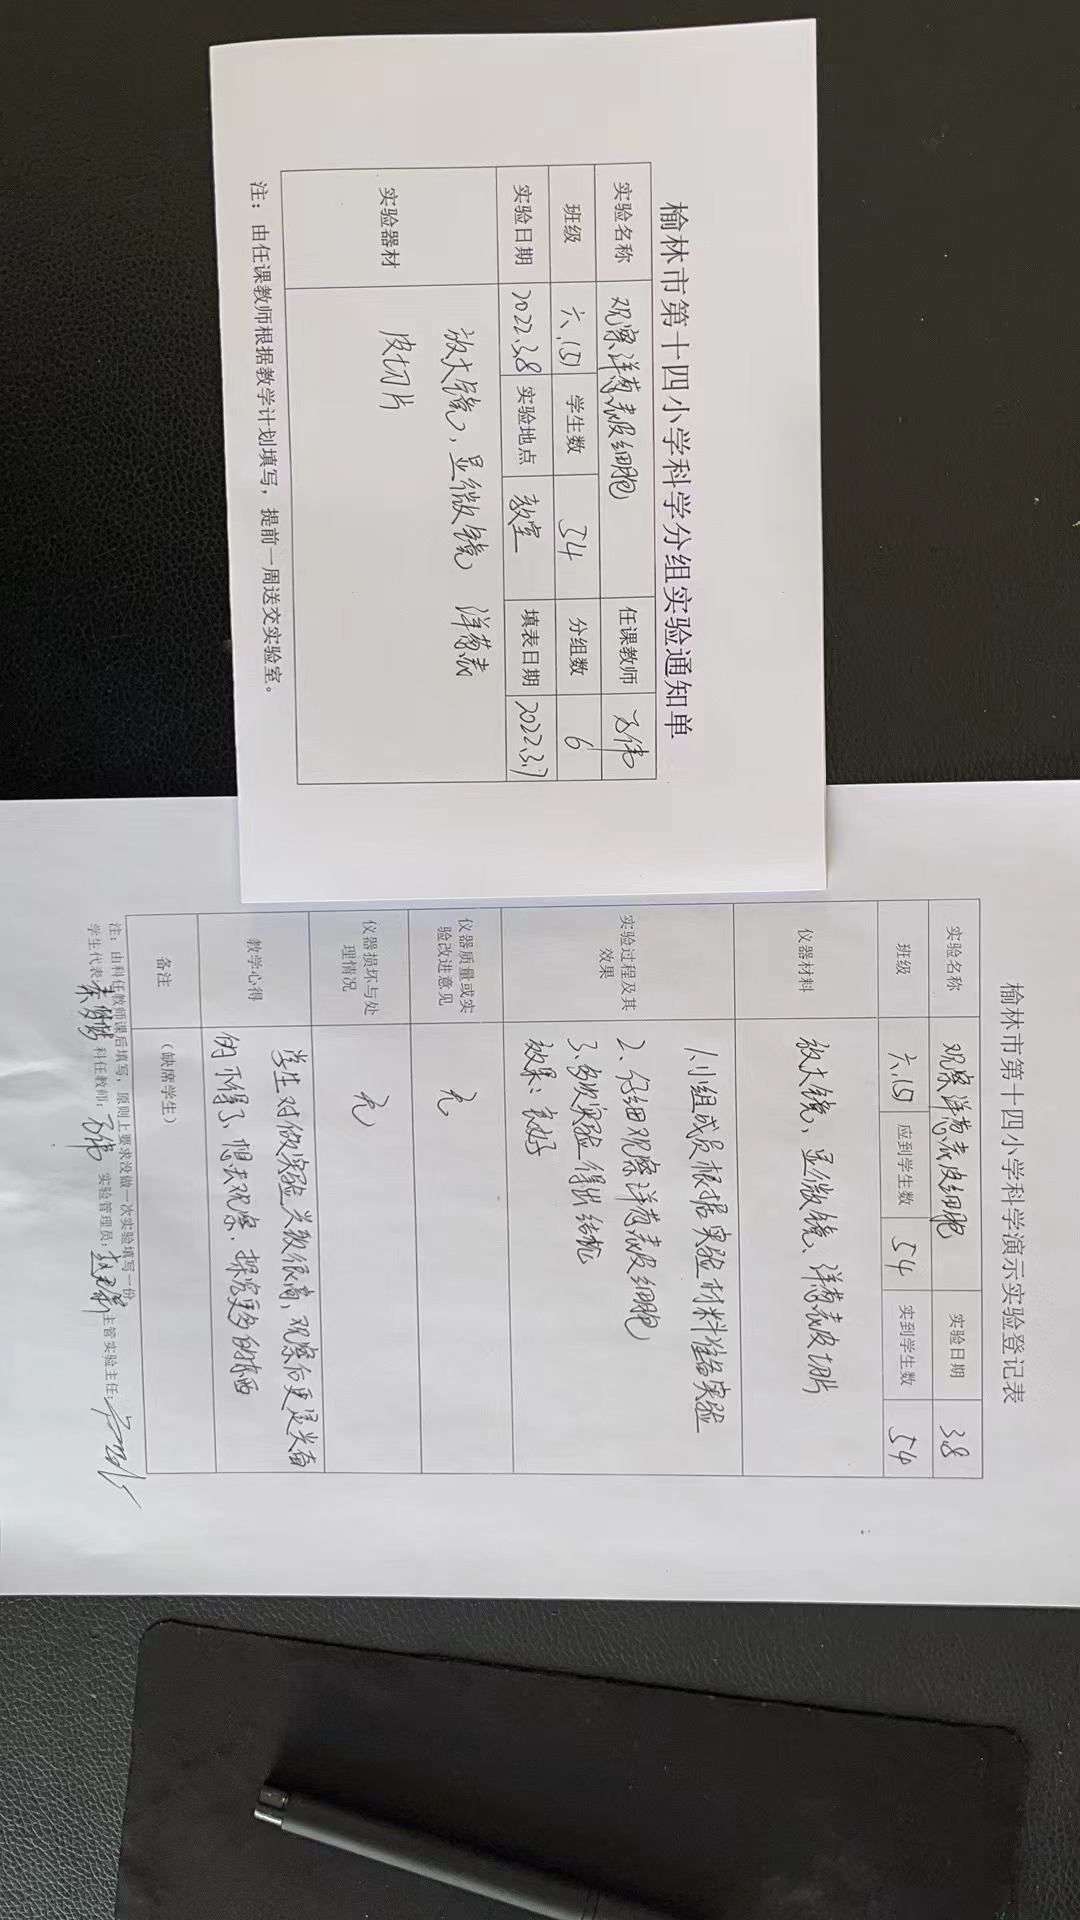 榆林市第十四小学科学分组实验通知单
实验名称 观察洋葱表皮细胞 任课教师
班级 六.(5) 学生数 54 分组数 6
实验日期 2022.3.8 实验地点 教室 填表日期 2022.3.7
实验器材 放大镜、显微镜 洋葱表
皮切片
注：由任课教师根据教学计划填写，提前一周送交实验室。
榆林市第十四小学科学演示实验登记表
实验名称 观察洋葱表皮细胞 实验日期 3.8
班级 六.(5) 应到学生数 54 实到学生数 54
仪器材料 放大镜、显微镜、洋葱表皮切片
实验过程及其
效果
1.小组成员根据实验材料准备实验
2、仔细观察洋葱表皮细胞
3.多次实验得出结论
效果：良好
仪器质量或实
验改进意见
无
仪器损坏与处
理情况
无
教学心得
学生对做实验兴致很高，观察后更是兴奋
的不得了，想去观察、探究更多的东西
备注 （缺席学生）
注：由科任教师课后填写，原则上要求没做一次实验填写一份。
学生代表： 科任教师： 实验管理员： 主管实验主任：